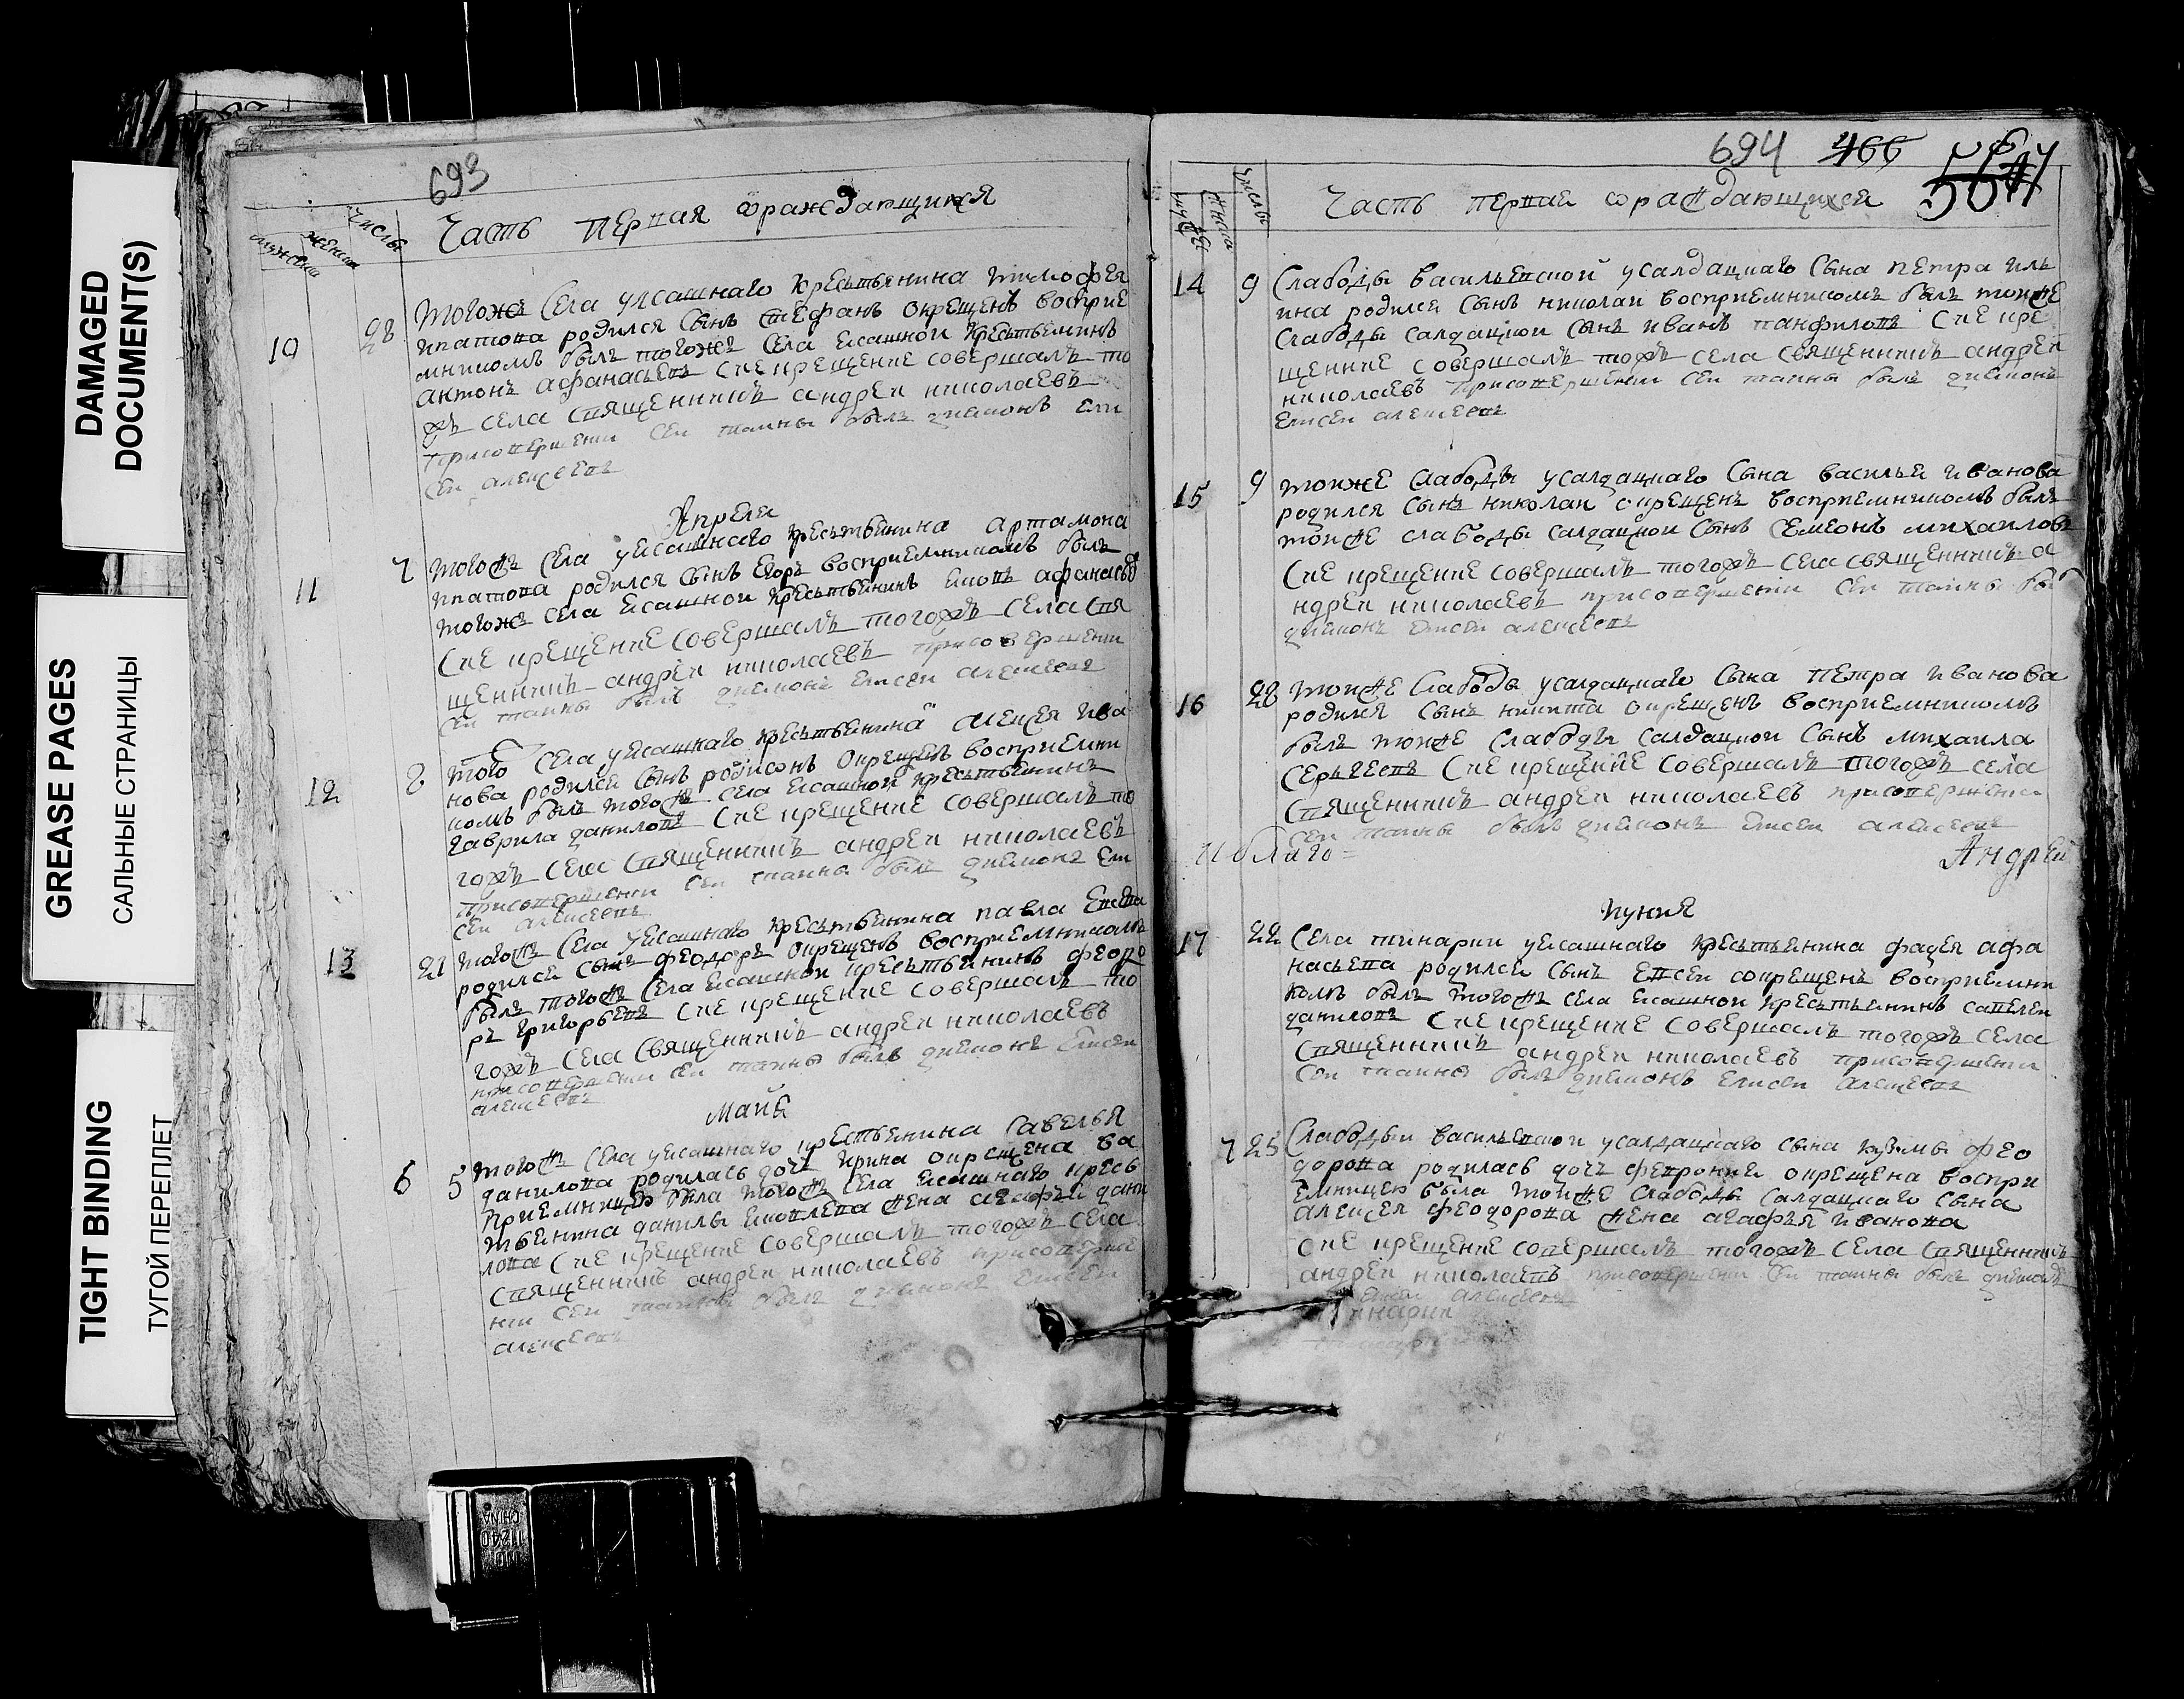 DAMAGED
DOCUMENT(S)
GREASE PAGES
САЛЬНЫЕ СТРАНИЦЫ
TIGHT BINDING
ТУГОЙ ПЕРЕПЛЕТ
693
мужеска
женска
числы
Часть первая ораждающихся
10 28 Тогоже села уясашнаго крестьянина тимофея
ипатова родился сынъ стефанъ окрещенъ восприе
мникомъ былъ тогоже села ясашной крестьянинъ
антонъ афанасьевъ Сие крещение совершалъ то
гожъ села священникъ андреи николаевъ
присовершении сеи таины былъ диаконъ ели
сеи алексеевъ
Апреля
11 7 тогожъ села уясашнаго крестьянина артамона
ипатова родился сынъ егоръ восприемникомъ былъ
тогоже села ясашной крестьянинъ афанасьев
Сие крещение совершалъ тогожъ села свя
щенникъ андреи николаевъ присовершени
сеи таины былъ диаконъ елисеи алексеевъ
12 8 того села уясашнаго крестьянина алексея ива
нова родился сынъ родионъ окрещенъ восприемни
комъ былъ тогожъ села ясашной крестьянинъ
гаврила даниловъ Сие крещение совершалъ то
гожъ села священникъ андреи николаевъ
присовершени сеи таины былъ диаконъ ели
сеи алексеевъ
13 21 тогожъ села уясашнаго крестьянина павла
родился сынъ феодоръ окрещенъ восприемникомъ
былъ тогожъ села ясашной крестьянинъ феодо
ръ григорьевъ Сие крещение совершалъ то
гожъ села священникъ андреи николаевъ
присовершении сеи таины былъ диаконъ елисеи
алексеевъ
Майя
6 5 тогожъ села уясашнаго крестьянина савелья
данилова родилась дочь ирина окрещена во
приемницею была тогожъ села ясашнаго кресь
тьянина данилы жена агафья дани
лова Сие крещение совершалъ тогожъ села
священникъ андреи николаевъ присоверше
нии сеи таины былъ диаконъ елисеи
алексеевъ
694 466
числы
женска
мужеска
Часть первая ораждающихся
14 9 Слабоды васильевской усалдацкаго сына петра иль
ина родился сынъ николаи восприемникомъ былъ тойже
слабоды салдацкой сынъ иванъ панфиловъ Сие кре
щение совершалъ тожъ села священникъ андреи
николаевъ присовершении сеи таины былъ диаконъ
елисеи алексеевъ
15 9 тойже слабоды усалдацкаго сына василья иванова
родился сынъ николаи окрещенъ восприемникомъ былъ
тойже слабоды салдацкой сынъ семеонъ михаиловъ
Сие крещение совершалъ тогожъ села священникъ а
ндреи николаевъ присовершении сеи таины был
диаконъ елисеи алексеевъ
16 28 тойже слабоды усалдацкаго сына петра иванова
родился сынъ никита окрещенъ восприемникомъ
былъ тойже слабоды салдацкой сынъ михаила
сергеевъ Сие крещение совершалъ тогожъ села
священникъ андреи николаевъ присовершени
сеи таины былъ диаконъ елисеи алексеевъ
Андрей
Иуния
17 22 Села тинарки уясашнаго крестьянина фадея афа
насьева родился сынъ евсеи окрещенъ восприемни
комъ былъ тогожъ села ясашной крестьянинъ савелеи
даниловъ Сие крещение совершалъ тогожъ села
священникъ андреи николаевъ присовершени
сеи таины былъ диаконъ елисеи алексеевъ
7 25 Слабоды васильевской усалдацкаго сына кузмы фео
дорова родилась дочь феврония окрещена воспри
емницею была тойже слабоды салдацкаго сына
алексея феодорова жена агафья иванова
Сие крещение совершалъ тогожъ села священникъ
андреи николаевъ присовершени сеи таины былъ диаконъ
елисеи алексеевъ